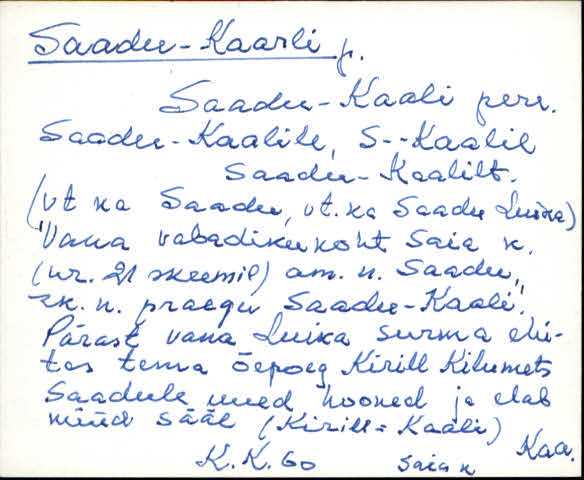 Saadu-Kaarli p.
Saadu-Kaali pere.
Saadu-Kaalile, S--Kaalil
Saadu-Kaalilt.
(vt ka Saadu, vt. ka Saadu Luika)
"Vana vabadikukoht Saia k.
(nr. 21 skeemil) am. n. Saadu,
rk. n. praegu Saadu-Kaali".
Pärast vana Luika surma ehi-
tas tema õepoeg Kirill Kilumets
Saadule uued hooned ja elab
nüüd sääl (Kirill = Kaali)
Kaa.
K.K. 60 Saia k